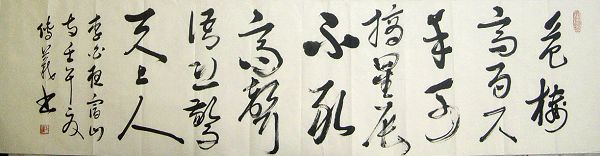 危樓
高百尺
手可
摘星辰
不敢
高聲
語恐驚
天上人
李白夜宿山
寺壬午夏
傳義书